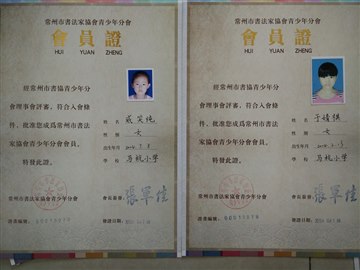 常州市書法家協會青少年分會
會員證
HUI YUAN ZHENG
經常州市書協青少年分
會理事會評審，符合入會條
件，批准您成爲常州市書法
家協會青少年分會會員。
特發此證。
姓名
性別 女
出生年月
學校 馬杭小學
常州市書法家協會青少年分會
會長簽章：
證書編號：
發證日期：
常州市書法家協會青少年分會
會員證
HUI YUAN ZHENG
經常州市書協青少年分
會理事會評審，符合入會條
件，批准您成爲常州市書法
家協會青少年分會會員。
特發此證。
姓名
性別 女
出生年月
學校 馬杭小學
常州市書法家協會青少年分會
會長簽章：
證書編號：
發證日期：